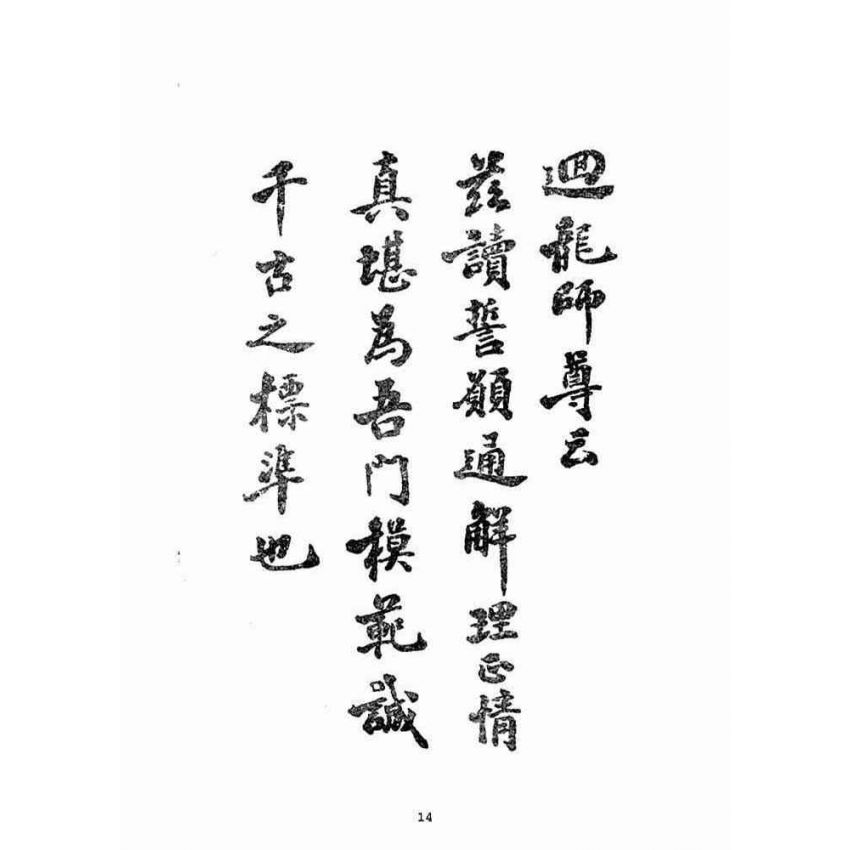 迴龍師尊云
茲讀誓願通解理正情
真堪為吾門模範誠
千古之標準也
14